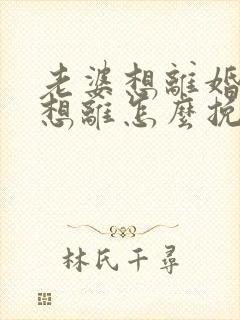 老婆想離婚
想離怎麼挽
林氏千尋